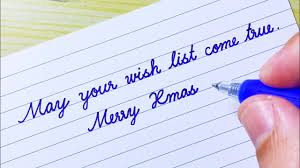 May your wish list come true.
Merry Xmas